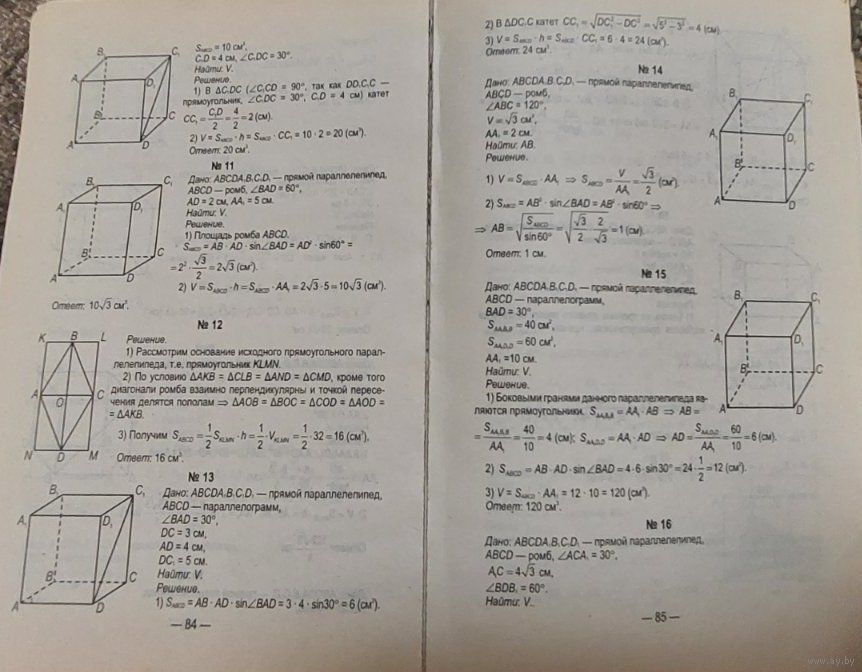 S_ABCD = 10 см²,
C₁D = 4 см, ∠C₁DC = 30°.
Найти: V.
Решение.
1) В ΔC₁DC (∠C₁CD = 90°, так как DD₁C₁C —
прямоугольник, ∠C₁DC = 30°, C₁D = 4 см) катет
CC₁ = C₁D/2 = 4/2 = 2 (см).
2) V = S_ABCD · h = S_ABCD · CC₁ = 10 · 2 = 20 (см³).
Ответ: 20 см³.
№ 11
Дано: ABCDA₁B₁C₁D₁ — прямой параллелепипед,
ABCD — ромб, ∠BAD = 60°,
AD = 2 см, AA₁ = 5 см.
Найти: V.
Решение.
1) Площадь ромба ABCD.
S_ABCD = AB · AD · sin∠BAD = AD² · sin60° =
= 2² · √3/2 = 2√3 (см²).
2) V = S_ABCD · h = S_ABCD · AA₁ = 2√3 · 5 = 10√3 (см³).
Ответ: 10√3 см³.
№ 12
K B L
A O C
N D M
Решение.
1) Рассмотрим основание исходного прямоугольного парал-
лелепипеда, т.е. прямоугольник KLMN.
2) По условию ΔAKB = ΔCLB = ΔAND = ΔCMD, кроме того
диагонали ромба взаимно перпендикулярны и точкой пересе-
чения делятся пополам ⇒ ΔAOB = ΔBOC = ΔCOD = ΔAOD =
= ΔAKB.
3) Получим S_ABCD = 1/2 S_KLMN · h = 1/2 · V_KLMN = 1/2 · 32 = 16 (см³),
Ответ: 16 см³.
№ 13
Дано: ABCDA₁B₁C₁D₁ — прямой параллелепипед,
ABCD — параллелограмм,
∠BAD = 30°,
DC = 3 см,
AD = 4 см,
DC₁ = 5 см.
Найти: V.
Решение.
1) S_ABCD = AB · AD · sin∠BAD = 3 · 4 · sin30° = 6 (см²).
— 84 —
2) В ΔDC₁C катет CC₁ = √(DC₁² − DC²) = √(5² − 3²) = 4 (см).
3) V = S_ABCD · h = S_ABCD · CC₁ = 6 · 4 = 24 (см³).
Ответ: 24 см³.
№ 14
Дано: ABCDA₁B₁C₁D₁ — прямой параллелепипед,
ABCD — ромб,
∠ABC = 120°,
V = √3 см³,
AA₁ = 2 см.
Найти: AB.
Решение.
1) V = S_ABCD · AA₁ ⇒ S_ABCD = V/AA₁ = √3/2 (см²).
2) S_ABCD = AB² · sin∠BAD = AB² · sin60° ⇒
⇒ AB = √(S_ABCD/sin60°) = √(√3/2 · 2/√3) = 1 (см).
Ответ: 1 см.
№ 15
Дано: ABCDA₁B₁C₁D₁ — прямой параллелепипед,
ABCD — параллелограмм,
BAD = 30°,
S_AA₁B₁B = 40 см²,
S_AA₁D₁D = 60 см²,
AA₁ = 10 см.
Найти: V.
Решение.
1) Боковыми гранями данного параллелепипеда яв-
ляются прямоугольники. S_AA₁B₁B = AA₁ · AB ⇒ AB =
= S_AA₁B₁B/AA₁ = 40/10 = 4 (см); S_AA₁D₁D = AA₁ · AD ⇒ AD = S_AA₁D₁D/AA₁ = 60/10 = 6 (см).
2) S_ABCD = AB · AD · sin∠BAD = 4 · 6 · sin30° = 24 · 1/2 = 12 (см²).
3) V = S_ABCD · AA₁ = 12 · 10 = 120 (см³).
Ответ: 120 см³.
№ 16
Дано: ABCDA₁B₁C₁D₁ — прямой параллелепипед,
ABCD — ромб, ∠ACA₁ = 30°,
A₁C = 4√3 см,
∠BDB₁ = 60°.
Найти: V.
— 85 —
www.ay.by